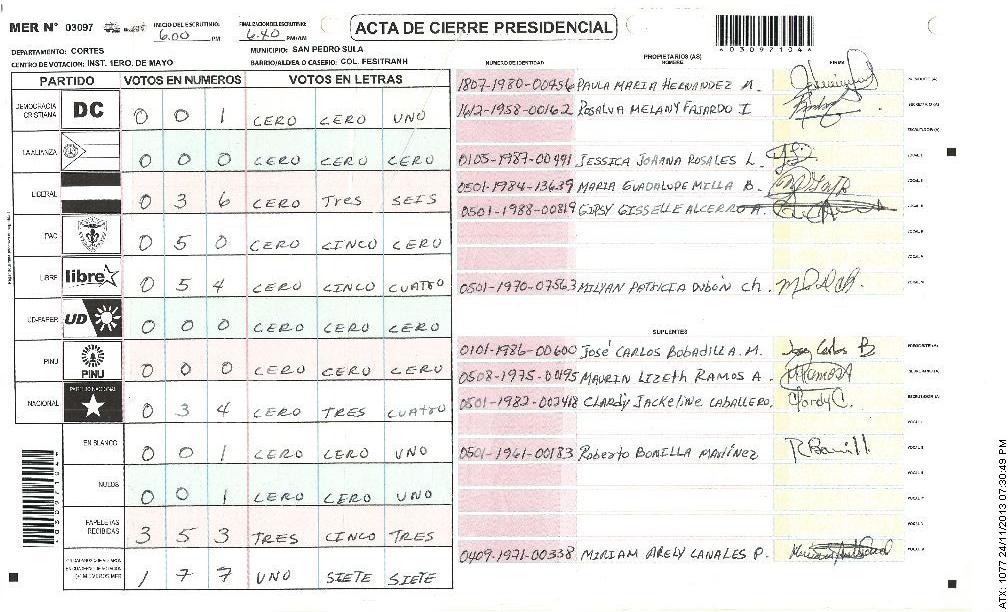 MER Nº 03097
INICIO DEL ESCRUTINIO: 6:00 PM
FINALIZACION ESCRUTINIO: 6:40 PM/AM
ACTA DE CIERRE PRESIDENCIAL
DEPARTAMENTO: CORTES
MUNICIPIO: SAN PEDRO SULA
CENTRO DE VOTACION: INST. 1ERO. DE MAYO
BARRIO/ALDEA O CASERIO: COL. FESITRANH
PARTIDO VOTOS EN NUMEROS VOTOS EN LETRAS
DEMOCRACIA CRISTIANA DC 0 0 1 CERO CERO UNO
LA ALIANZA 0 0 0 CERO CERO CERO
LIBERAL 0 3 6 CERO Tres SEIS
PAC 0 5 0 CERO CINCO CERO
LIBRE libre 0 5 4 CERO CINCO CUATRO
UD-FAPER UD 0 0 0 CERO CERO CERO
PINU PINU 0 0 0 CERO CERO CERO
NACIONAL PARTIDO NACIONAL 0 3 4 CERO TRES CUATRO
EN BLANCO 0 0 1 CERO CERO UNO
NULOS 0 0 1 CERO CERO UNO
PAPELETAS RECIBIDAS 3 5 3 TRES CINCO TRES
1 7 7 UNO SIETE SIETE
NUMERO DE IDENTIDAD PROPIETARIOS (AS) NOMBRE FIRMA
1807-1980-00456 PAULA MARIA HERNANDEZ M.
1612-1958-00162 ROSALVA MELANY FAJARDO I
0105-1987-00491 JESSICA JOHANA ROSALES L.
0501-1984-13639 MARIA GUADALUPE MILLA B.
0501-1988-00819 GIPSY GISSELLE ALCERRO A.
0501-1970-07563 MILYAN PATRICIA DUBÓN Ch.
SUPLENTES
0101-1986-00600 José CARLOS BOBADILLA. M. Jose Carlos B
0508-1975-00495 MAURIN LIZETH RAMOS A.
0501-1982-007418 CLARDY JACKELINE CABALLERO. Clardy C.
0501-1961-00183 Roberto BONILLA MARTÍNEZ
0409-1971-00338 MIRIAM ARELY CANALES P.
ATX: 1077 24/11/2013 07:30:49 PM